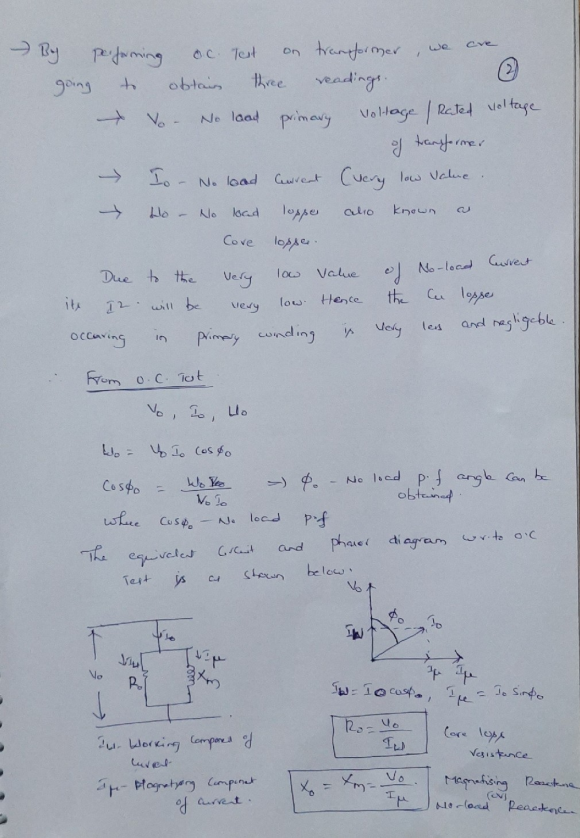 → By performing o.c. Test on transformer, we are
②
going to obtain three readings.
→ V₀ - No load primary voltage / Rated voltage
of transformer
→ I₀ - No load Current (very low value.
→ W₀ - No load losses also known as
Core losses.
Due to the very low value of No-load Current
its I2. will be very low. Hence the Cu losses
occuring in primary winding is very less and negligible.
∴ From o.c. Test
V₀, I₀, W₀
W₀ = V₀ I₀ cosϕ₀
Cosϕ₀ = W₀ / V₀ I₀ ⇒ ϕ₀ - No load p.f angle can be
obtained.
where cosϕ₀ - No load p.f
The equivalent Circuit and phasor diagram w.r.to o.c
Test is as shown below.
V₀
ϕ₀
I₀
Iw
Iμ Iμ
I₀
Iw Iμ
V₀ R₀ Xm
Iw = I₀ cosϕ₀, Iμ = I₀ Sinϕ₀
R₀ = V₀ / Iw Core loss
resistance
Iw - Working component of
current
X₀ = Xm = V₀ / Iμ Magnetising Reactance
(or)
No-load Reactance
Iμ - Magnetizing Component
of current.